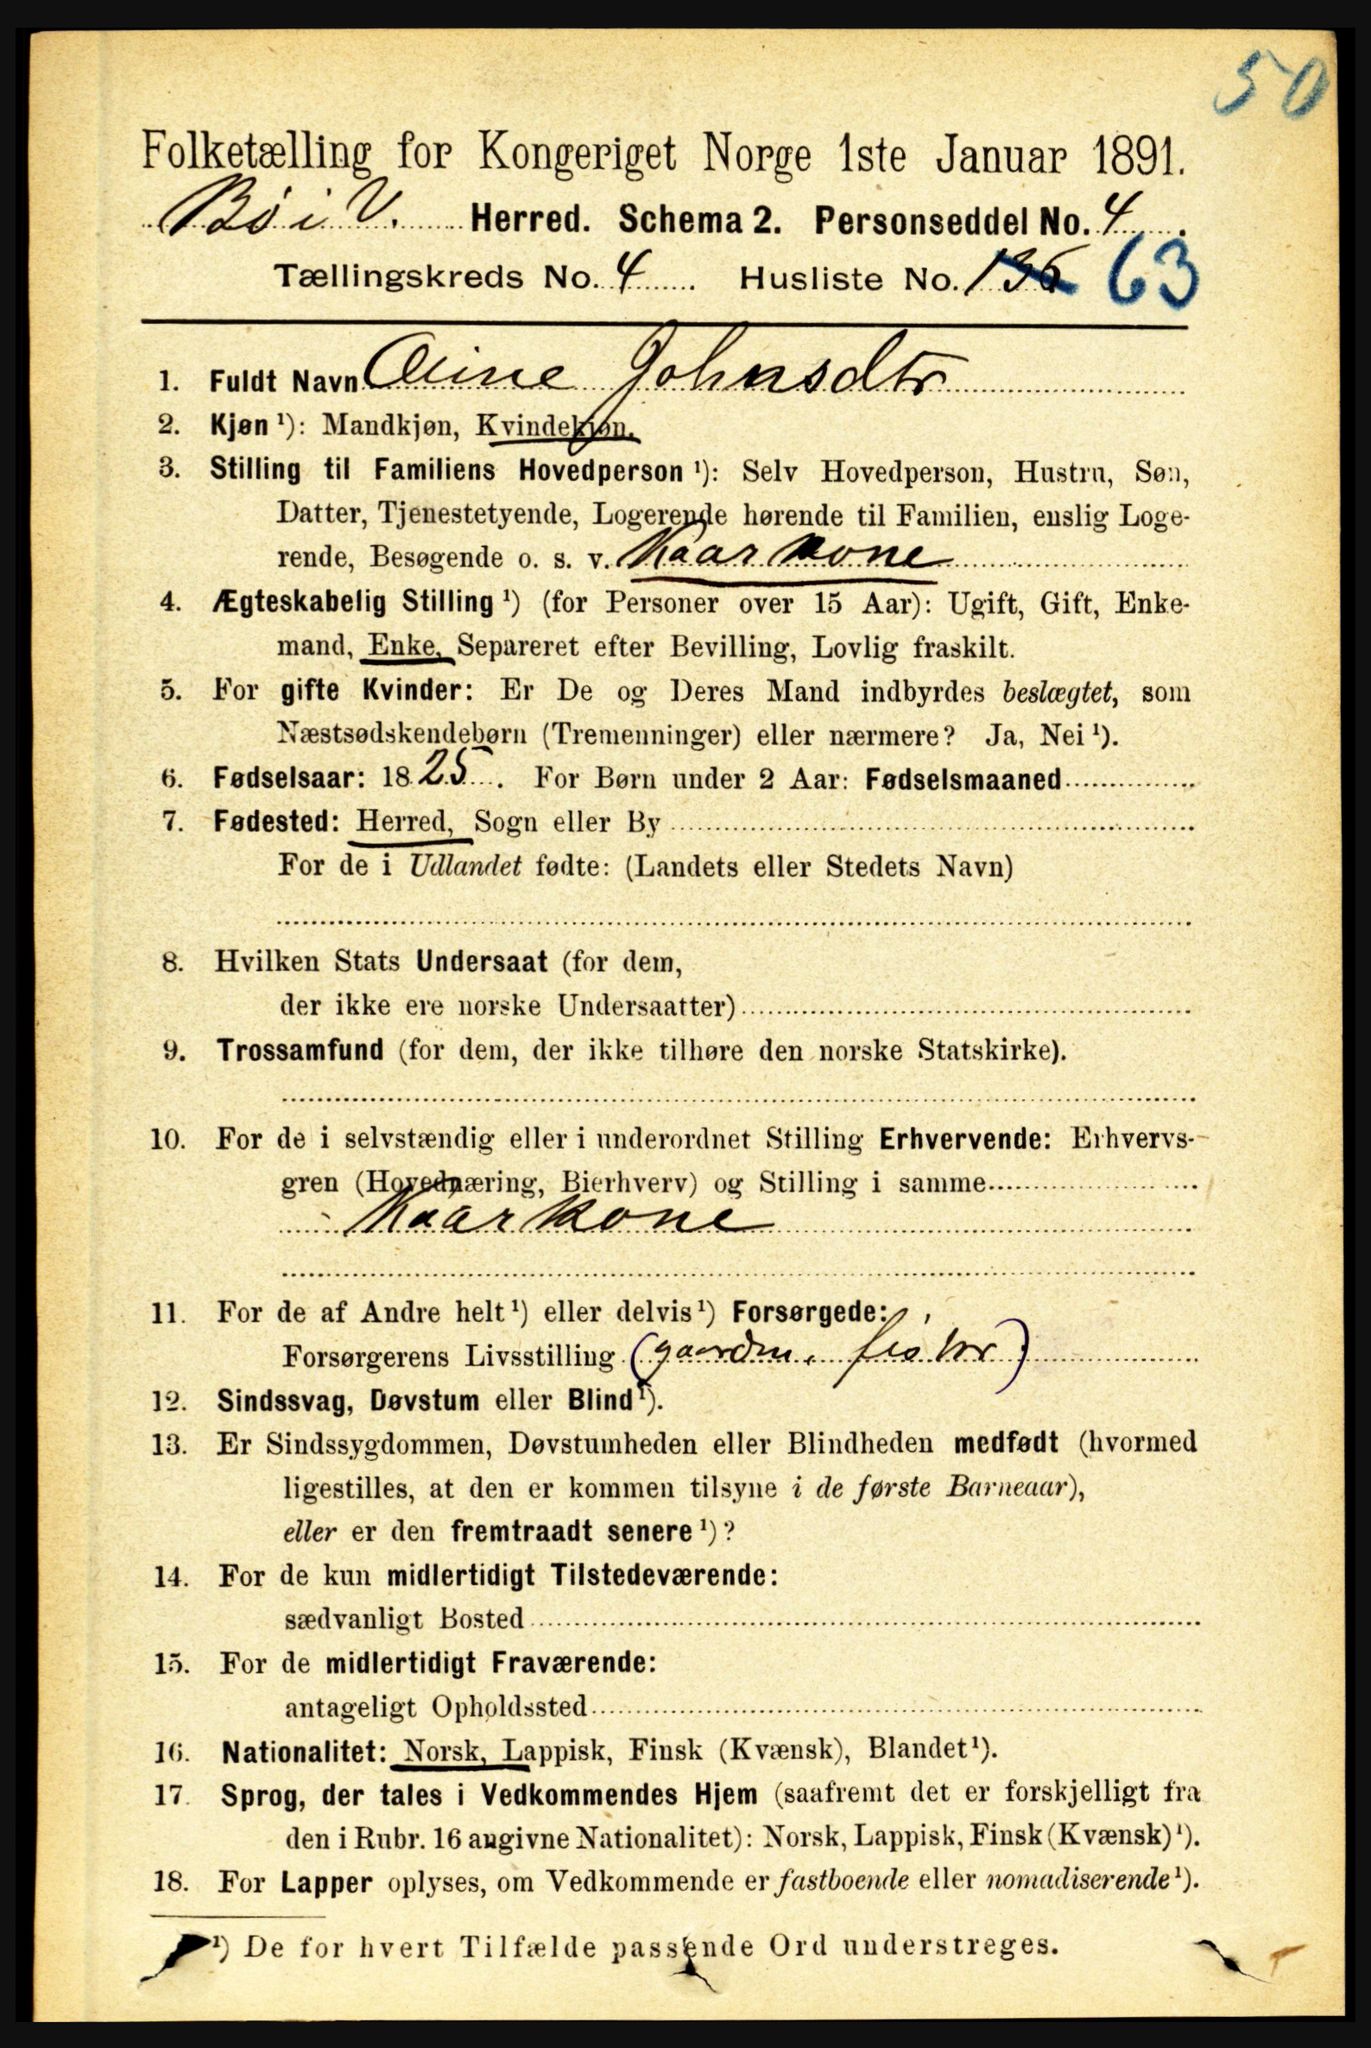 50
Folketælling for Kongeriget Norge 1ste Januar 1891.
Bø i V. Herred. Schema 2. Personseddel No. 4.
Tællingskreds No. 4 Husliste No. 136 63
1. Fuldt Navn Oline Johnsdtr
2. Kjøn ¹): Mandkjøn, Kvindekjøn.
3. Stilling til Familiens Hovedperson ¹): Selv Hovedperson, Hustru, Søn,
Datter, Tjenestetyende, Logerende hørende til Familien, enslig Loge-
rende, Besøgende o. s. v. Kaarkone
4. Ægteskabelig Stilling ¹) (for Personer over 15 Aar): Ugift, Gift, Enke-
mand, Enke, Separeret efter Bevilling, Lovlig fraskilt.
5. For gifte Kvinder: Er De og Deres Mand indbyrdes beslægtet, som
Næstsødskendebørn (Tremenninger) eller nærmere? Ja, Nei ¹).
6. Fødselsaar: 1825. For Børn under 2 Aar: Fødselsmaaned
7. Fødested: Herred, Sogn eller By
For de i Udlandet fødte: (Landets eller Stedets Navn)
8. Hvilken Stats Undersaat (for dem,
der ikke ere norske Undersaatter)
9. Trossamfund (for dem, der ikke tilhøre den norske Statskirke).
10. For de i selvstændig eller i underordnet Stilling Erhvervende: Erhvervs-
gren (Hovednæring, Bierhverv) og Stilling i samme
Kaarkone
11. For de af Andre helt ¹) eller delvis ¹) Forsørgede:
Forsørgerens Livsstilling (gaardm.
12. Sindssvag, Døvstum eller Blind ¹).
13. Er Sindssygdommen, Døvstumheden eller Blindheden medfødt (hvormed
ligestilles, at den er kommen tilsyne i de første Barneaar),
eller er den fremtraadt senere ¹)?
14. For de kun midlertidigt Tilstedeværende:
sædvanligt Bosted
15. For de midlertidigt Fraværende:
antageligt Opholdssted
16. Nationalitet: Norsk, Lappisk, Finsk (Kvænsk), Blandet ¹).
17. Sprog, der tales i Vedkommendes Hjem (saafremt det er forskjelligt fra
den i Rubr. 16 angivne Nationalitet): Norsk, Lappisk, Finsk (Kvænsk) ¹).
18. For Lapper oplyses, om Vedkommende er fastboende eller nomadiserende ¹).
¹) De for hvert Tilfælde passende Ord understreges.